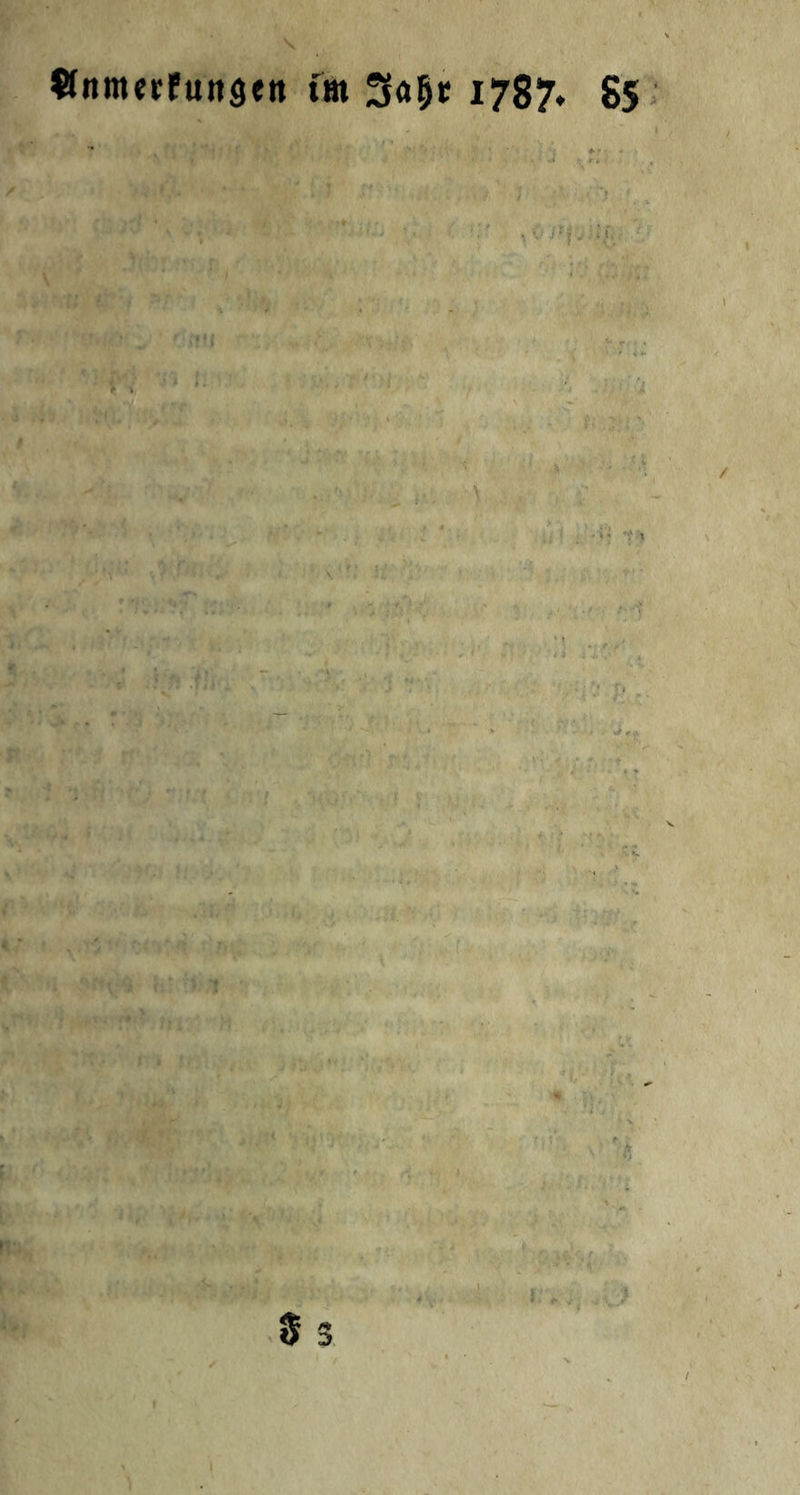 Anmerkungen im Jahr 1787. 85
F 3